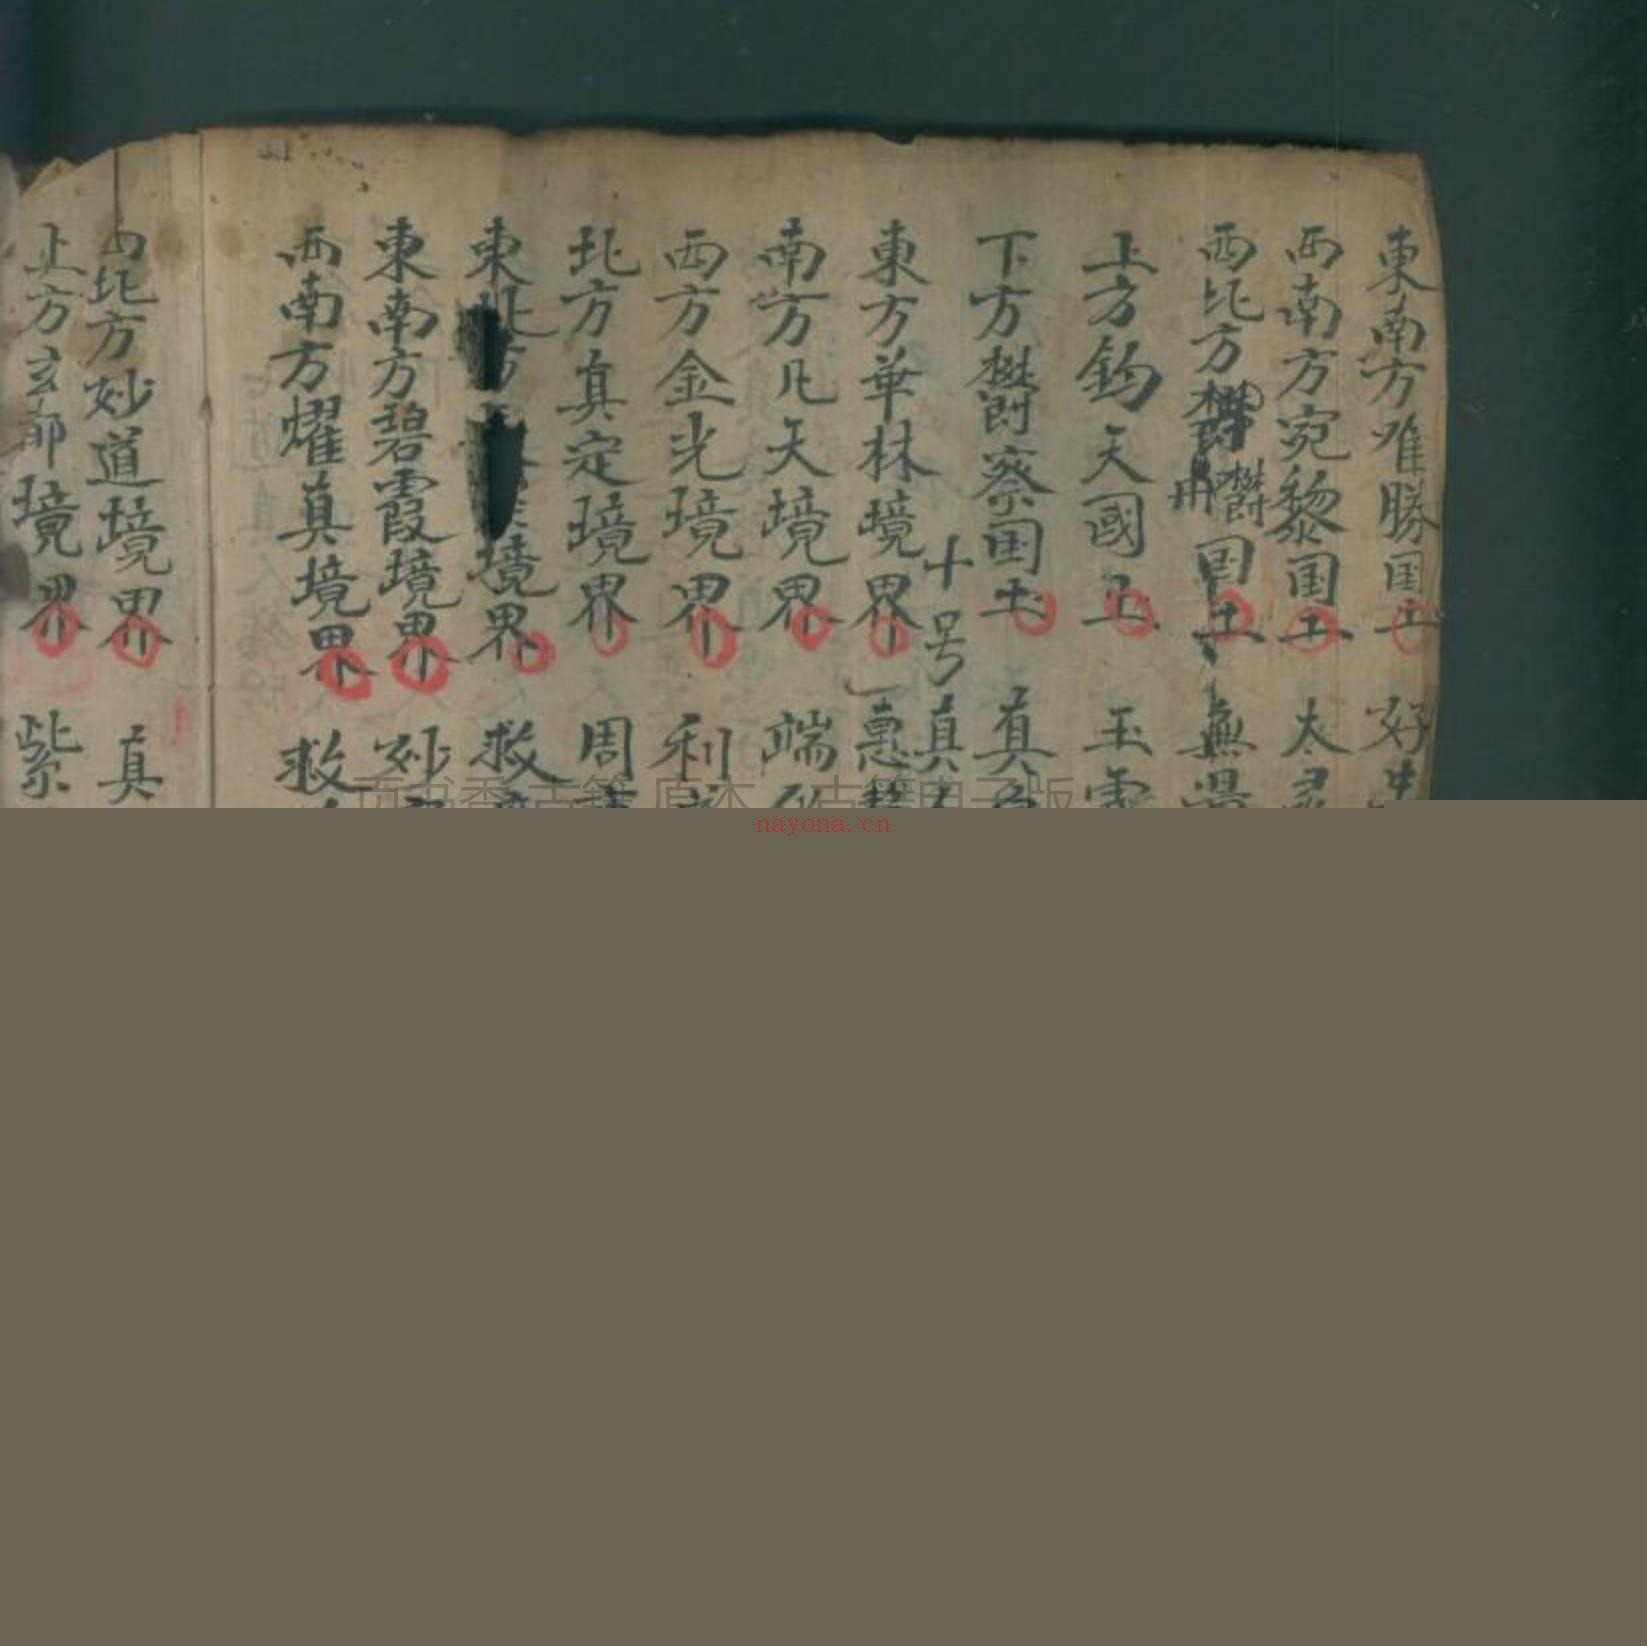 東南方难勝国土 好生
西南方宛黎国土 太灵
西北方鬱 国土 無量
上方鈞天國土 玉
下方鬱察国土 真
十号真
東方華林境界 惠
南方凡天境界 端
西方金光境界 利
北方真定境界 周
東北方 境界 救
東南方碧霞境界 妙
西南方耀真境界 救
西北方妙道境界 真
上方玄都境界 紫
百书斋古籍 原本 古籍电子版
nayona.cn